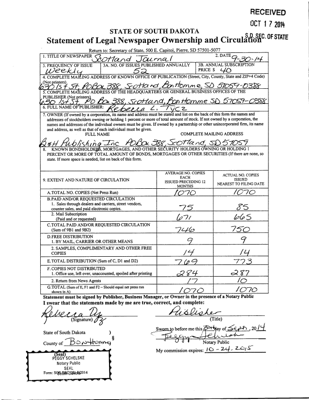 RECEIVED
OCT 17 2014
S.D. SEC. OF STATE
STATE OF SOUTH DAKOTA
Statement of Legal Newspaper Ownership and Circulation
Return to: Secretary of State, 500 E. Capitol, Pierre, SD 57501-5077
1. TITLE OF NEWSPAPER Scotland Journal
2. DATE 9-30-14
3. FREQUENCY OF ISSUE Weekly
3A. NO. OF ISSUES PUBLISHED ANNUALLY 52
3B. ANNUAL SUBSCRIPTION PRICE $ 40
4. COMPLETE MAILING ADDRESS OF KNOWN OFFICE OF PUBLICATION (Street, City, County, State and ZIP+4 Code)
(Not printers)
690 1st St, PO Box 388, Scotland, Bon Homme SD 57059-0388
5. COMPLETE MAILING ADDRESS OF THE HEADQUARTERS OF GENERAL BUSINESS OFFICES OF THE
PUBLISHER (Not printers)
690 1st St PO Box 388, Scotland, Bon Homme SD 57059-0388
6. FULL NAME OF PUBLISHER: Rebecca L. Tycz
7. OWNER (If owned by a corporation, its name and address must be stated and list on the back of this form the names and
addresses of stockholders owning or holding 1 percent or more of total amount of stock. If not owned by a corporation, the
names and addresses of the individual owners must be given. If owned by a partnership or other unincorporated firm, its name
and address, as well as that of each individual must be given.
FULL NAME COMPLETE MAILING ADDRESS
B&H Publishing Inc PO Box 388, Scotland, SD 57059
8. KNOWN BONDHOLDERS, MORTAGES, AND OTHER SECURITY HOLDERS OWNING OR HOLDING 1
PERCENT OR MORE OF TOTAL AMOUNT OF BONDS, MORTGAGES OR OTHER SECURITIES (If there are none, so
state. If more space is needed, list on back of this form.
9. EXTENT AND NATURE OF CIRCULATION
AVERAGE NO. COPIES
EACH
ISSUES PRECEEDING 12
MONTHS
ACTUAL NO. COPIES
ISSUED
NEAREST TO FILING DATE
A. TOTAL NO. COPIES (Net Press Run) 1070 1070
B. PAID AND/OR REQUESTED CIRCULATION
1. Sales through dealers and carriers, street vendors,
counter sales, and paid electronic copies. 75 85
2. Mail Subscription
(Paid and or requested) 671 665
C. TOTAL PAID AND/OR REQUESTED CIRCULATION
(Sum of 9B1 and 9B2) 746 750
D. FREE DISTRIBUTION
1. BY MAIL, CARRIER OR OTHER MEANS 9 9
2. SAMPLES, COMPLIMENTARY AND OTHER FREE
COPIES 14 14
E. TOTAL DISTRIBUTION (Sum of C, D1 and D2) 769 773
F. COPIES NOT DISTRIBUTED
1. Office use, left over, unaccounted, spoiled after printing 284 287
2. Return from News Agents 17 10
G. TOTAL (Sum of E, F1 and F2 - Should equal net press run
shown in A) 1070 1070
Statement must be signed by Publisher, Business Manager, or Owner in the presence of a Notary Public
I swear that the statements made by me are true, correct, and complete:
Publisher
(Signature) (Title)
State of South Dakota )
County of Bon Homme
Sworn to before me this day of Sept, 2014
Notary Public
My commission expires: 10-24-2015
(Seal)
PEGGY SCHELSKE
Notary Public
SEAL